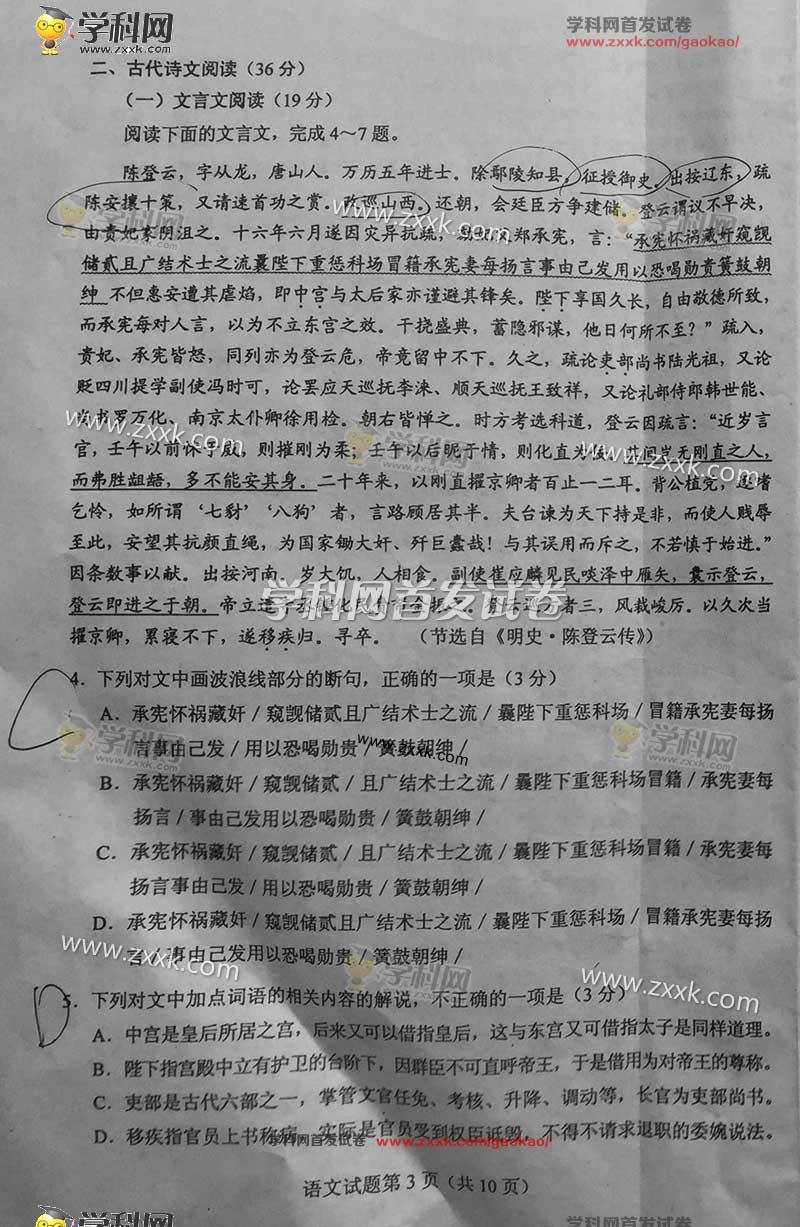 学科网
www.zxxk.com
学科网首发试卷
www.zxxk.com/gaokao/
二、古代诗文阅读（36分）
（一）文言文阅读（19分）
阅读下面的文言文，完成4～7题。
陈登云，字从龙，唐山人。万历五年进士。除鄢陵知县，征授御史。出按辽东，疏
陈安攘十策，又请速首功之赏。改巡山西。还朝，会廷臣方争建储。登云谓议不早决，
由贵妃家阴沮之。十六年六月遂因灾异抗疏，郑承宪，言：“承宪怀祸藏奸窥觊
储贰且广结术士之流曩陛下重惩科场冒籍承宪妻每扬言事由己发用以恐喝勋贵簧鼓朝
绅 不但惠安遭其虐焰，即中宫与太后家亦谨避其锋矣。陛下享国久长，自由敬德所致，
而承宪每对人言，以为不立东宫之效。干挠盛典，蓄隐邪谋，他日何所不至？”疏入，
贵妃、承宪皆怒，同列亦为登云危，帝竟留中不下。久之，疏论吏部尚书陆光祖，又论
贬四川提学副使冯时可，论罢应天巡抚李涞、顺天巡抚王致祥，又论礼部侍郎韩世能、
尚书罗万化、南京太仆卿徐用检。朝右皆惮之。时方考选科道，登云因疏言：“近岁言
官，壬午以前怵于威，则摧刚为柔；壬午以后昵于情，则化直为佞。其间岂无刚直之人，
而弗胜龃龉，多不能安其身。二十年来，以刚直擢京卿者百止一二耳。背公植党，逐嗜
乞怜，如所谓‘七豺’‘八狗’者，言路顾居其半。夫台谏为天下持是非，而使人贱辱
至此，安望其抗颜直绳，为国家锄大奸、歼巨蠹哉！与其误用而斥之，不若慎于始进。”
因条数事以献。出按河南。岁大饥，人相食。副使崔应麟见民啖泽中雁矢，囊示登云，
登云即进之于朝。帝立遣寺丞钟化民分赈之。登云巡方者三，风裁峻厉。以久次当
擢京卿，累寝不下，遂移疾归。寻卒。　（节选自《明史·陈登云传》）
4．下列对文中画波浪线部分的断句，正确的一项是（3分）
A．承宪怀祸藏奸／窥觊储贰且广结术士之流／曩陛下重惩科场／冒籍承宪妻每扬
言事由己发／用以恐喝勋贵／簧鼓朝绅／
B．承宪怀祸藏奸／窥觊储贰／且广结术士之流／曩陛下重惩科场冒籍／承宪妻每
扬言／事由己发用以恐喝勋贵／簧鼓朝绅／
C．承宪怀祸藏奸／窥觊储贰／且广结术士之流／曩陛下重惩科场冒籍／承宪妻每
扬言事由己发／用以恐喝勋贵／簧鼓朝绅／
D．承宪怀祸藏奸／窥觊储贰且广结术士之流／曩陛下重惩科场／冒籍承宪妻每扬
言／事由己发用以恐喝勋贵／簧鼓朝绅／
D 5．下列对文中加点词语的相关内容的解说，不正确的一项是（3分）
A．中宫是皇后所居之宫，后来又可以借指皇后，这与东宫又可借指太子是同样道理。
B．陛下指宫殿中立有护卫的台阶下，因群臣不可直呼帝王，于是借用为对帝王的尊称。
C．吏部是古代六部之一，掌管文官任免、考核、升降、调动等，长官为吏部尚书。
D．移疾指官员上书称病，实际是官员受到权臣诋毁，不得不请求退职的委婉说法。
学科网首发试卷 www.zxxk.com/gaokao/
语文试题第3页（共10页）
学科网
www.zxxk.com